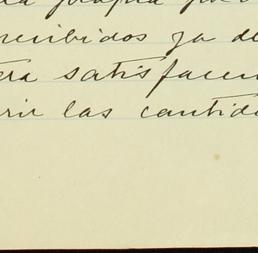 recibidos ya de
era satisfacer
rir las cantida